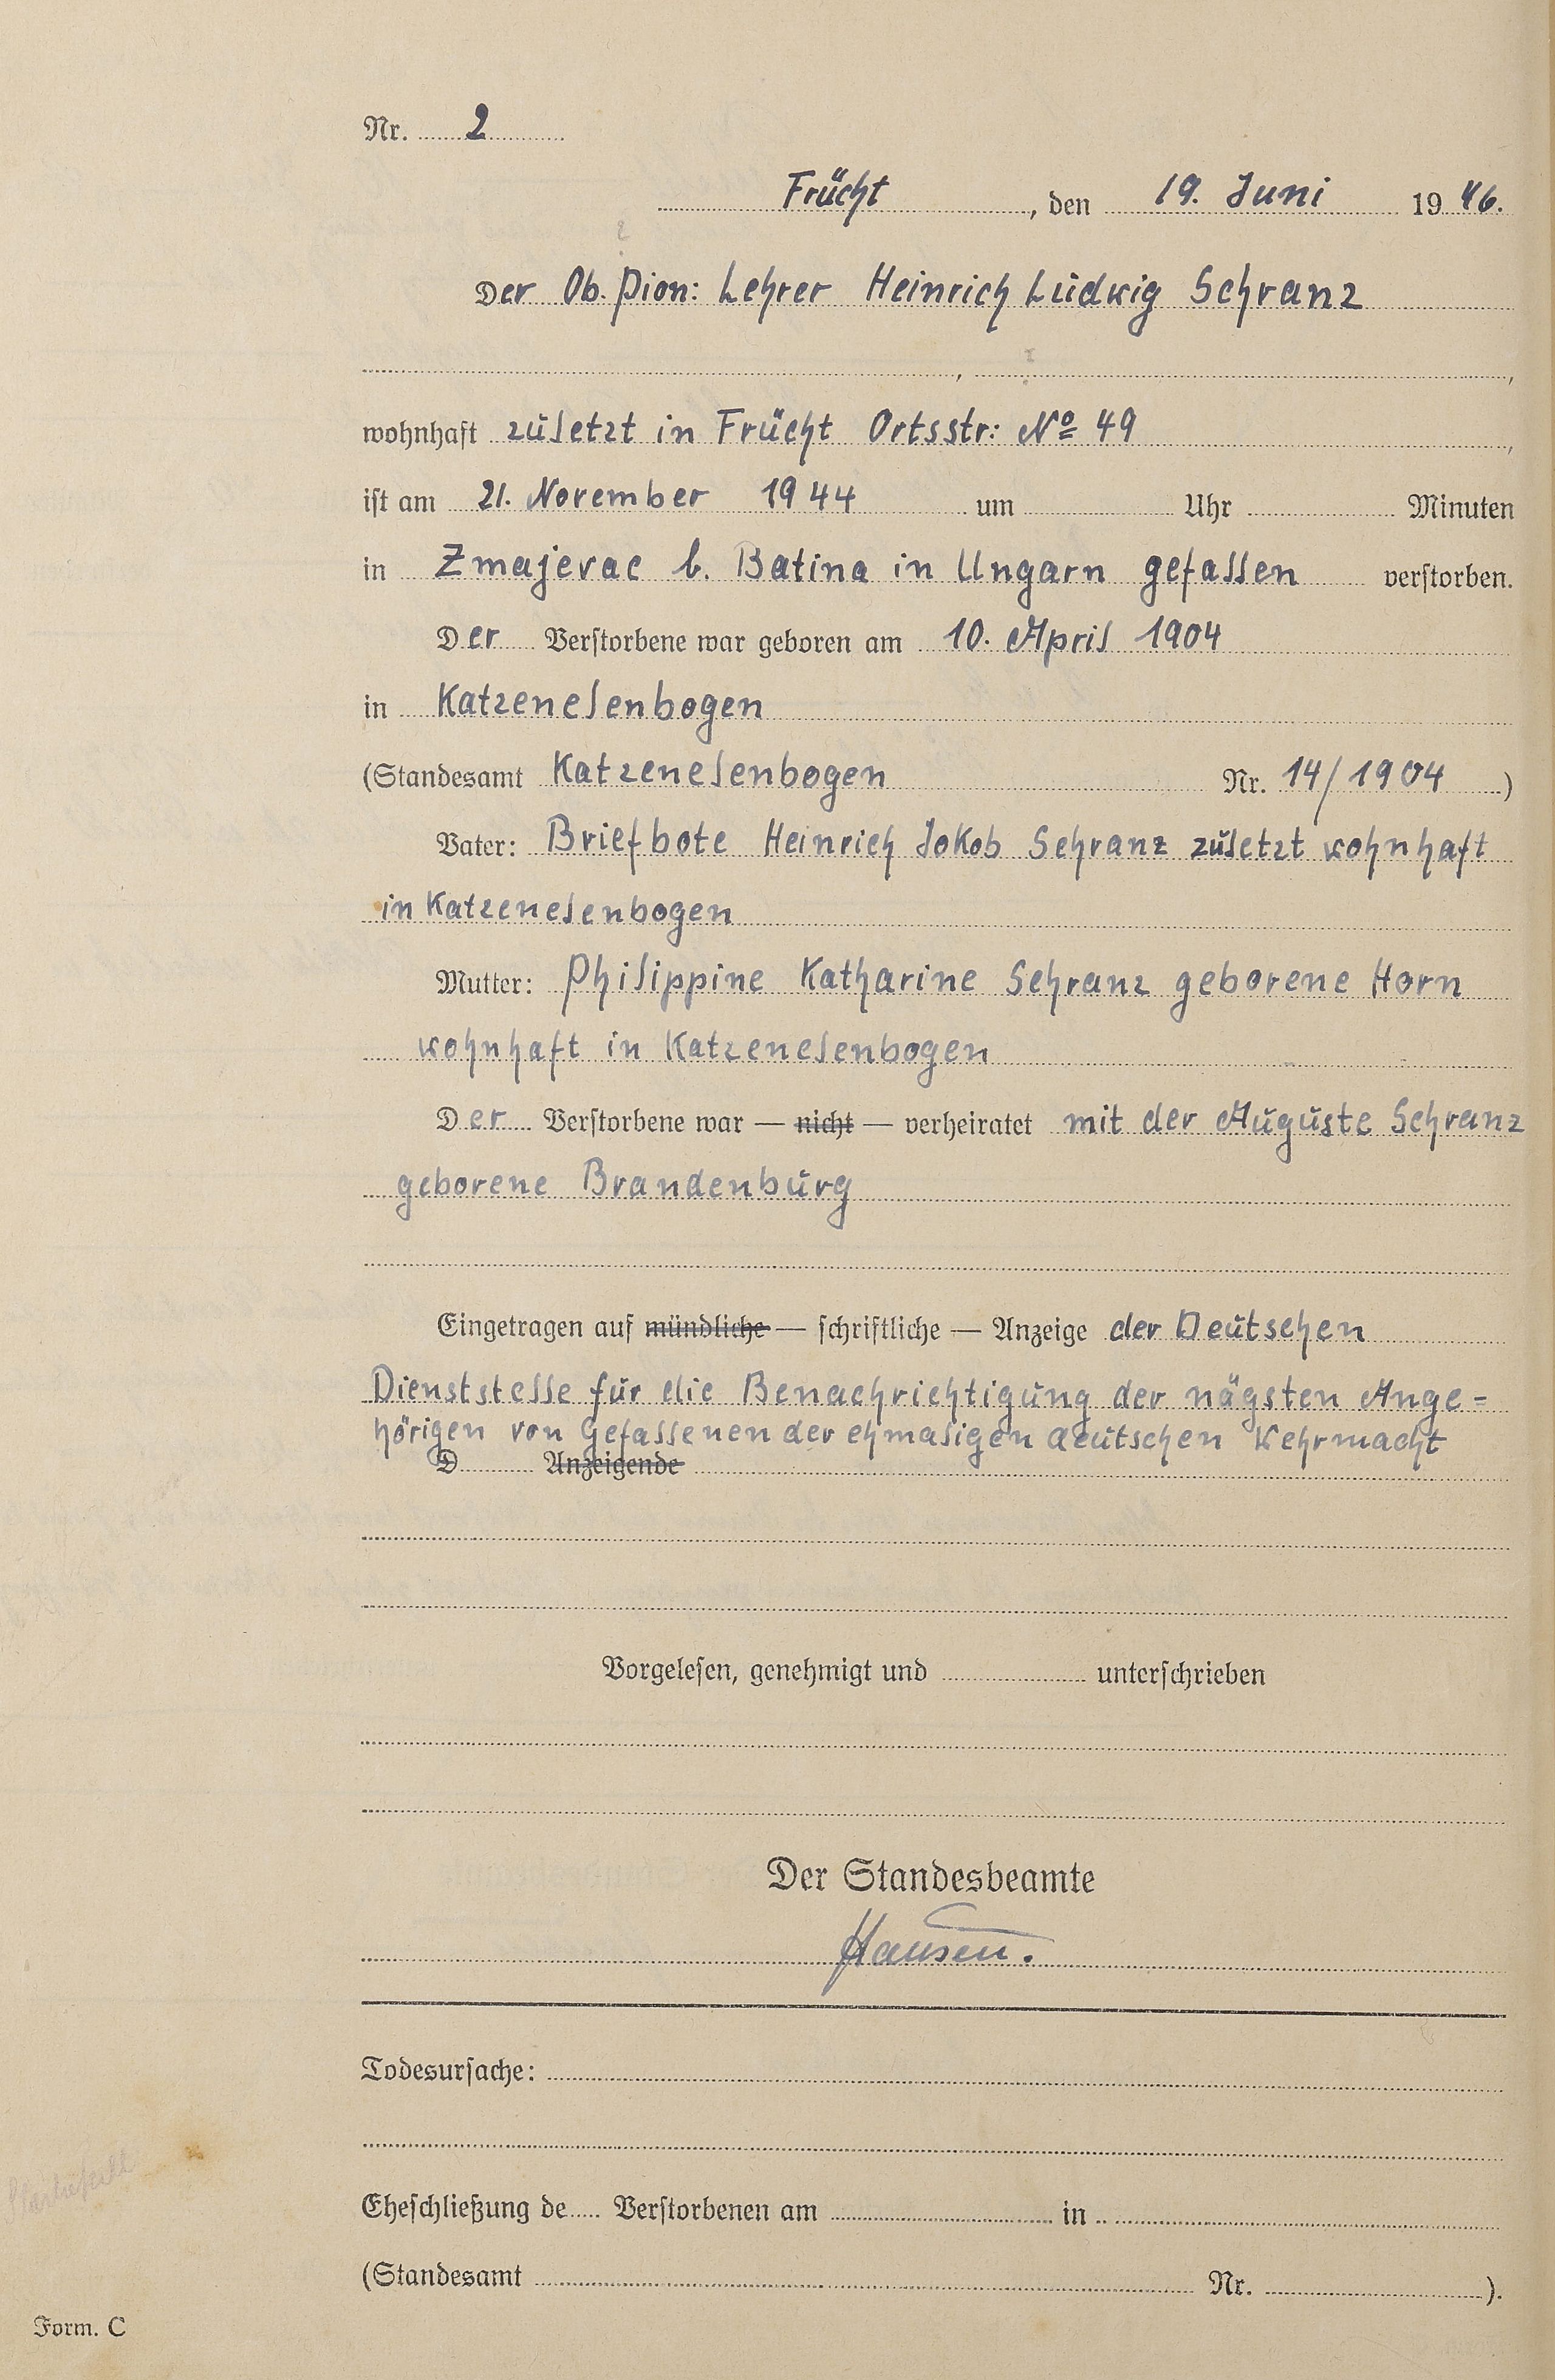 Nr. 2
Frücht, den 19. Juni 1946.
Der Ob. Pion: Lehrer Heinrich Ludwig Schranz
wohnhaft zuletzt in Frücht Ortsstr: No 49,
ist am 21. November 1944 um Uhr Minuten
in Zmajevac b. Batina in Ungarn gefallen verstorben.
Der Verstorbene war geboren am 10. April 1904
in Katzenelenbogen
(Standesamt Katzenelenbogen Nr. 14/1904)
Vater: Briefbote Heinrich Jokob Schranz zuletzt wohnhaft
in Katzenelenbogen
Mutter: Philippine Katharine Schranz geborene Horn
wohnhaft in Katzenelenbogen
Der Verstorbene war — nicht — verheiratet mit der Auguste Schranz
geborene Brandenburg
Eingetragen auf mündliche — schriftliche — Anzeige der Deutschen
Dienststelle für die Benachrichtigung der nägsten Ange=
hörigen von Gefallenen der ehmaligen deutschen Wehrmacht
D Anzeigende
Vorgelesen, genehmigt und unterschrieben
Der Standesbeamte
Hansen.
Todesursache:
Eheschließung de Verstorbenen am in
(Standesamt Nr. ).
Form. C